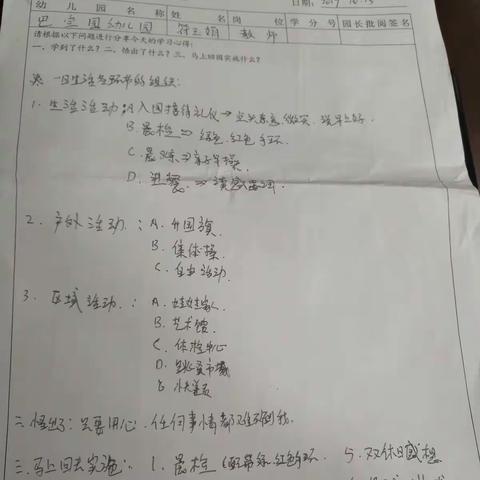 日期: 2019
幼儿园名称 姓名 岗位 学分号 园长批阅签名
幼儿园 符玉娟 教师
请根据以下问题进行分享今天的学习心得:
一、学到了什么?二、悟出了什么?三、马上回园实施什么?
一日生活各环节的组织:
1. 生活活动:A 入园接待礼仪→ 微笑、说早上好.
B. 晨检→绿色、红色手环.
C. 晨练→亲子早操.
D. 进餐→请感恩词.
2. 户外活动: A. 升国旗.
B. 集体操
C. 自由活动.
3. 区域活动: A. 娃娃家.
B. 艺术馆.
C. 体检中心
D. 跳蚤市场
二. 悟出了: 只要用心, 任何事情都难不倒我.
三. 马上回去实施: 1. 晨检(配带绿、红色手环. 5. 双休日感想